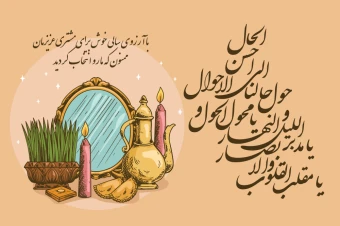 با آرزوی سالی خوش برای مشتری عزیزمان
ممنون که ما رو انتخاب کردید
یا مقلب القلوب والابصار
یا مدبر اللیل و النهار
یا محول الحول و الاحوال
حول حالنا الی
احسن
الحال